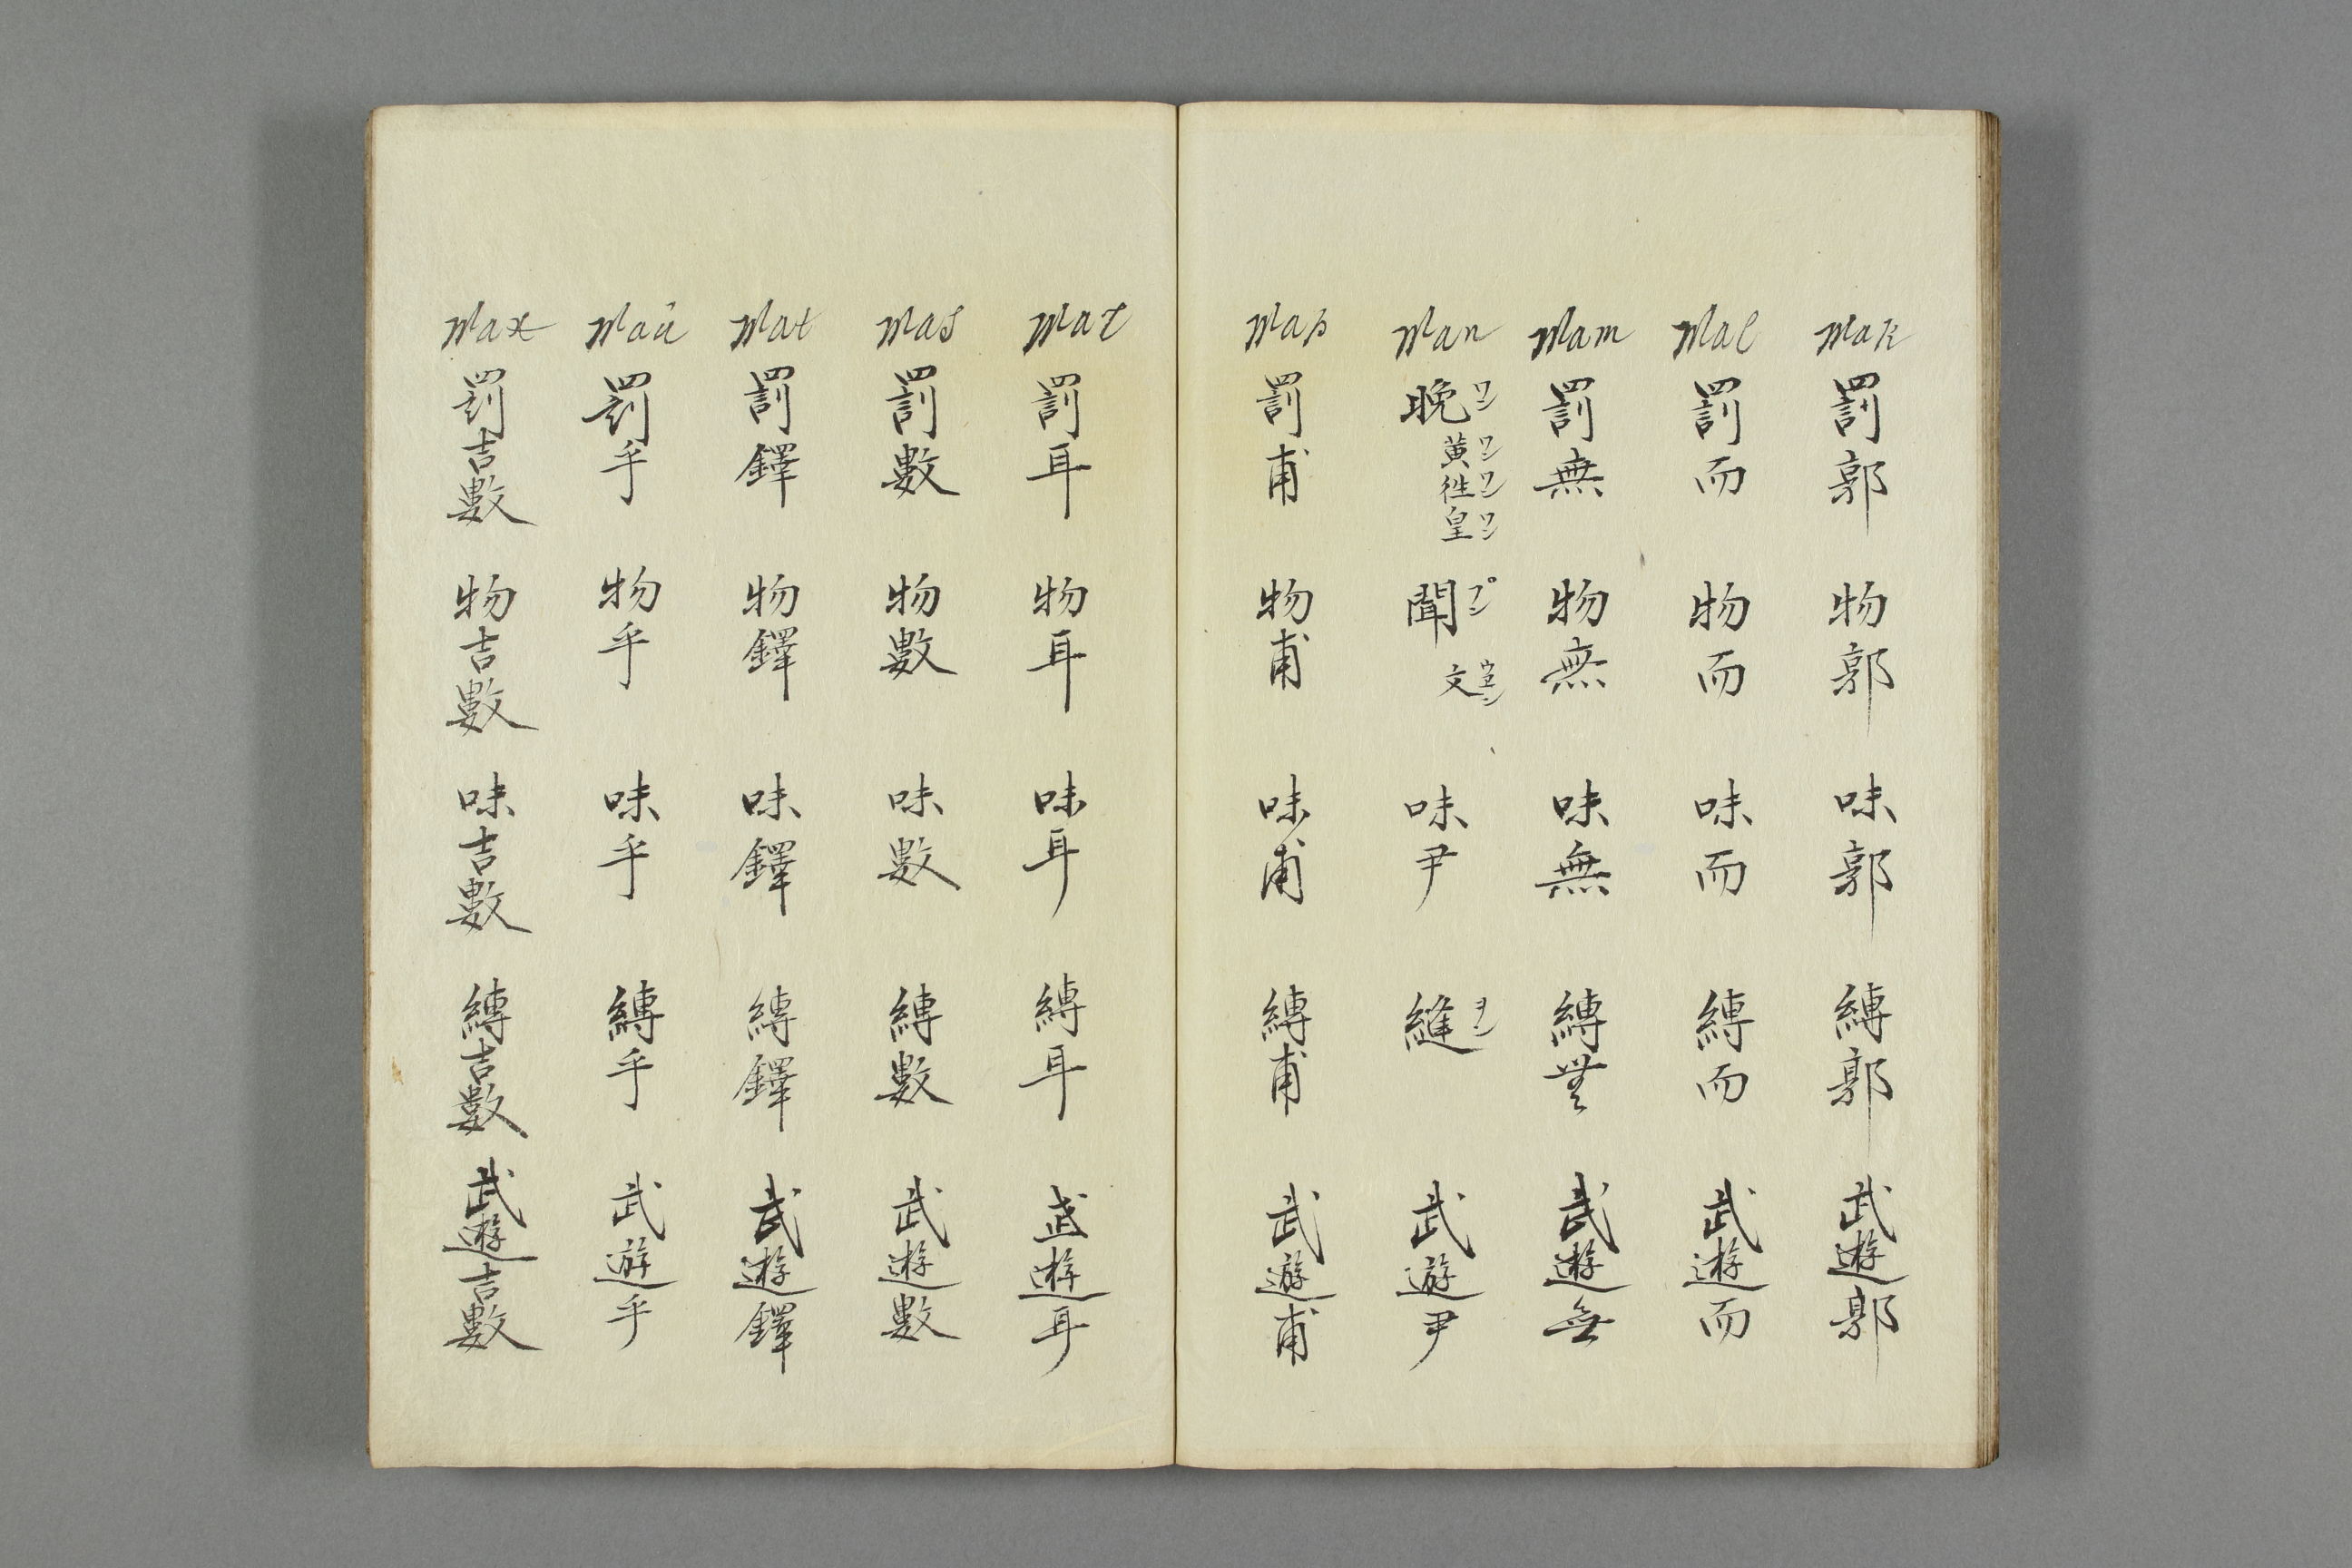 Wak 罰郭 物郭 味郭 縛郭 武遊郭
Wal 罰而 物而 味而 縛而 武遊而
Wam 罰無 物無 味無 縛無 武遊無
Wan 晩ワン 黄ワン 徃ワン 皇ワン 聞プン 文ウエン 味尹 縫ヲン 武遊尹
Wap 罰甫 物甫 味甫 縛甫 武遊甫
War 罰耳 物耳 味耳 縛耳 武遊耳
Was 罰數 物數 味數 縛數 武遊數
Wat 罰鐸 物鐸 味鐸 縛鐸 武遊鐸
Waŭ 罰乎 物乎 味乎 縛乎 武遊乎
Wax 罰吉數 物吉數 味吉數 縛吉數 武遊吉數